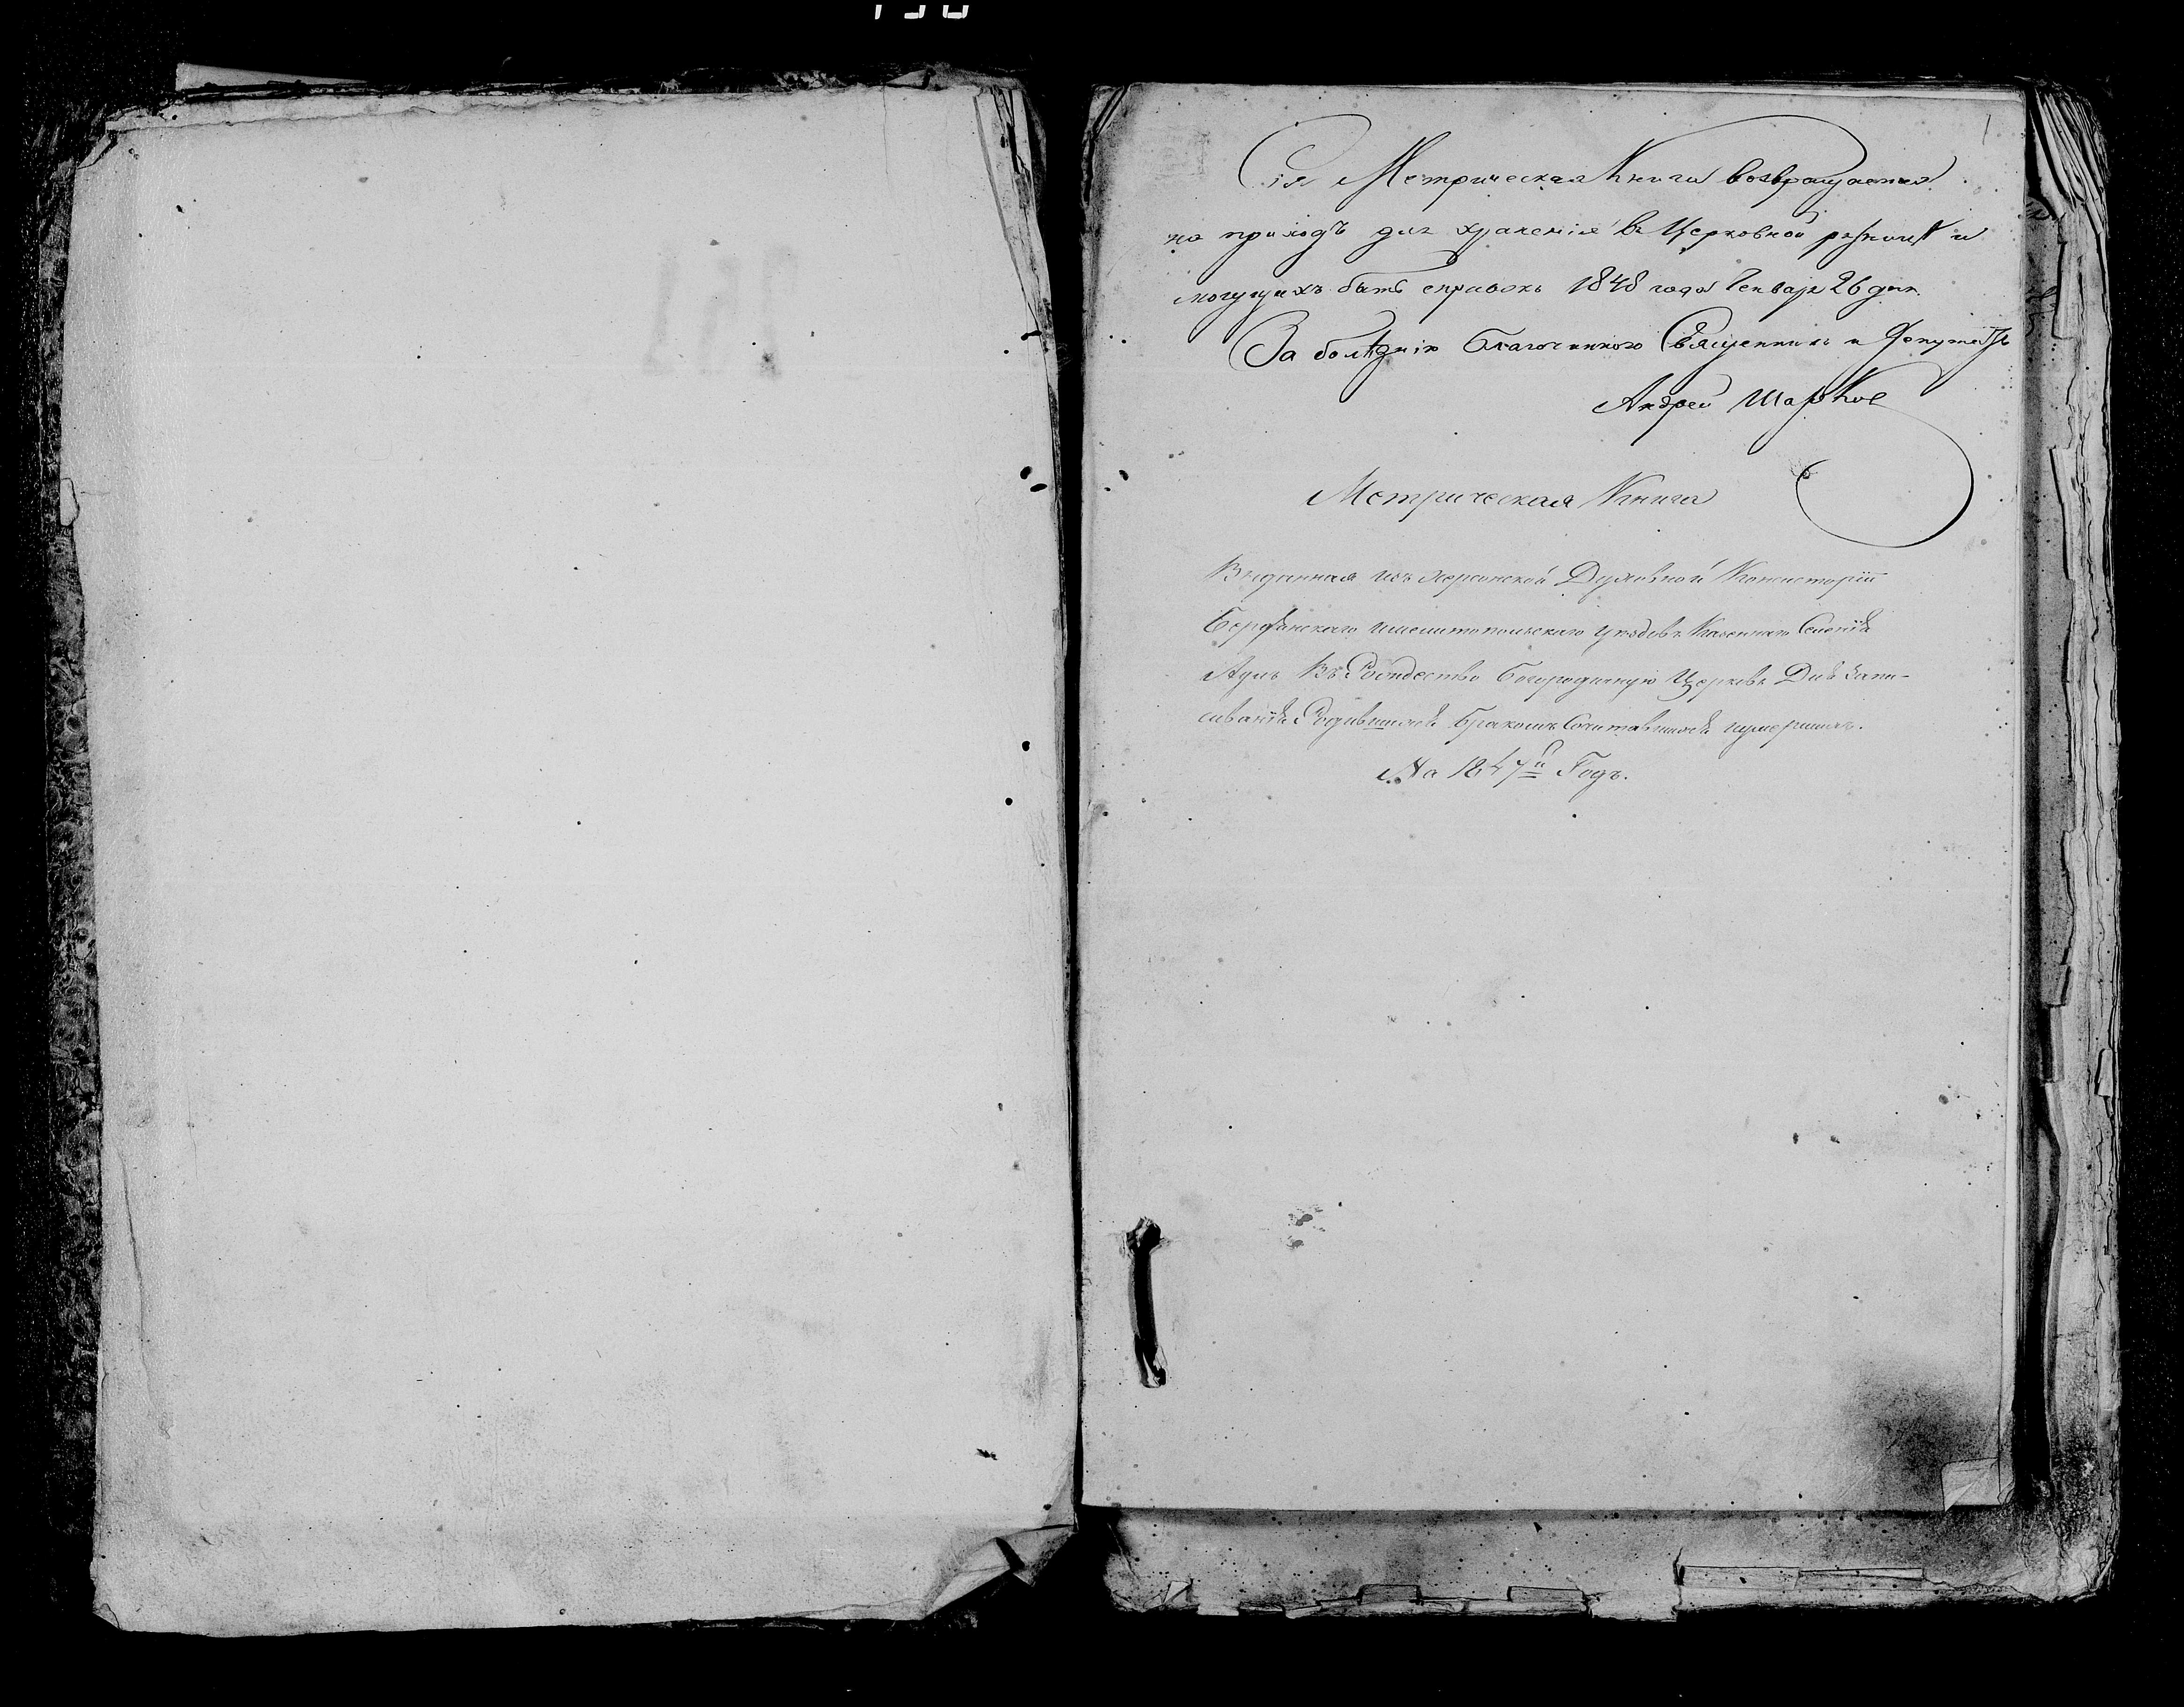 1
Сія Метрическая Книга возвращается
на приходъ для храненія въ Церковной ризницѣ и
могущихъ быть справокъ 1848 года Генваря 26 дня.
За болѣзнію Благочиннаго Священникъ и Депутатъ
Андрей
Метрическая Книга
Выданная изъ Херсонской Духовной Консисторіи
Казеннаго Селенія
Въ Рождество Богородичную Церковь Для Запи-
сыванія Родившихся Бракомъ Сочитавшихся иумершихъ.
На 1847й Годъ.